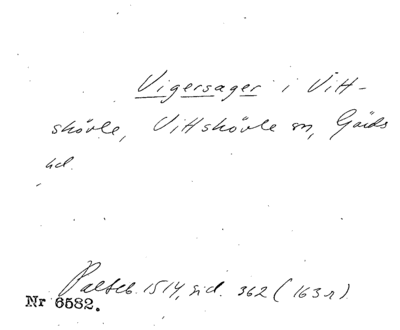 Vigersager i Vitt-
skövle, Vittskövle sn, Gärds
hd.
Palteb. 1514, sid. 362 (163 r)
Nr 6582.